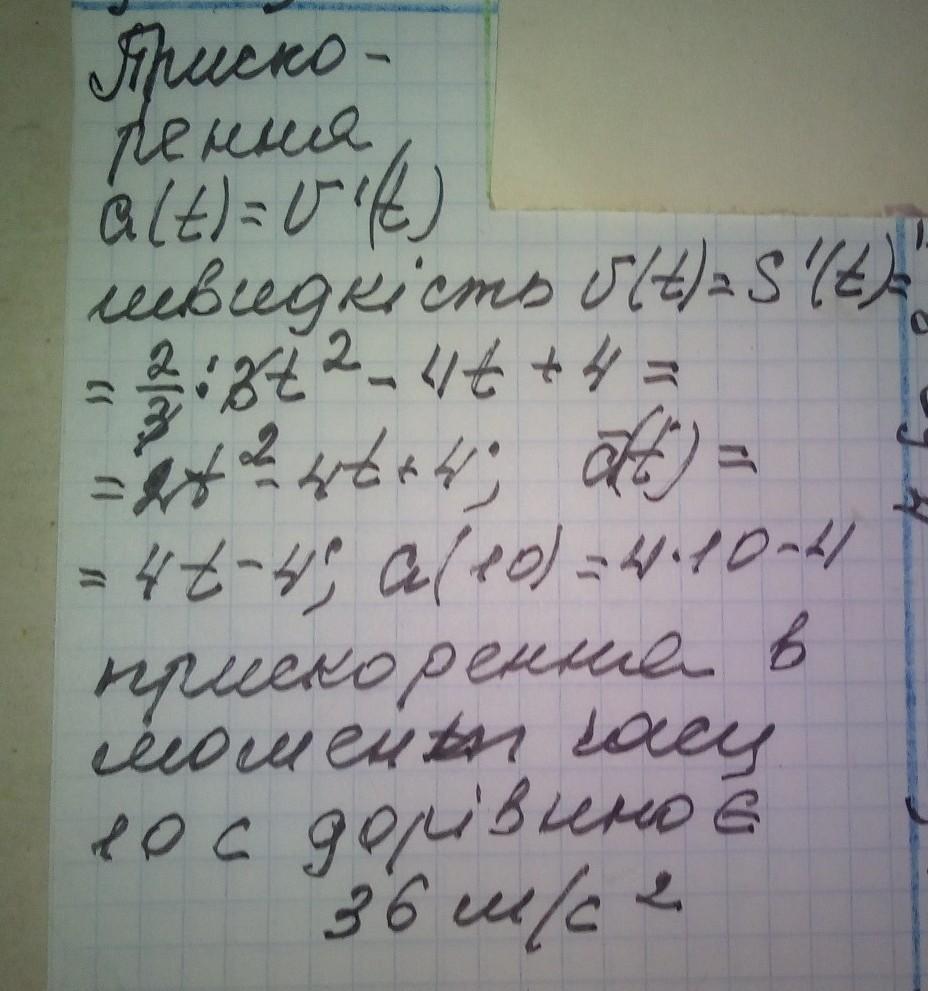 Приско-
рення
a(t) = v'(t)
швидкість v(t) = S'(t) =
= 2/3 · 3t² - 4t + 4 =
= 2t² - 4t + 4; a(t) =
= 4t - 4; a(10) = 4·10-4
прискорення в
момент часу
10 с дорівнює
36 м/с²